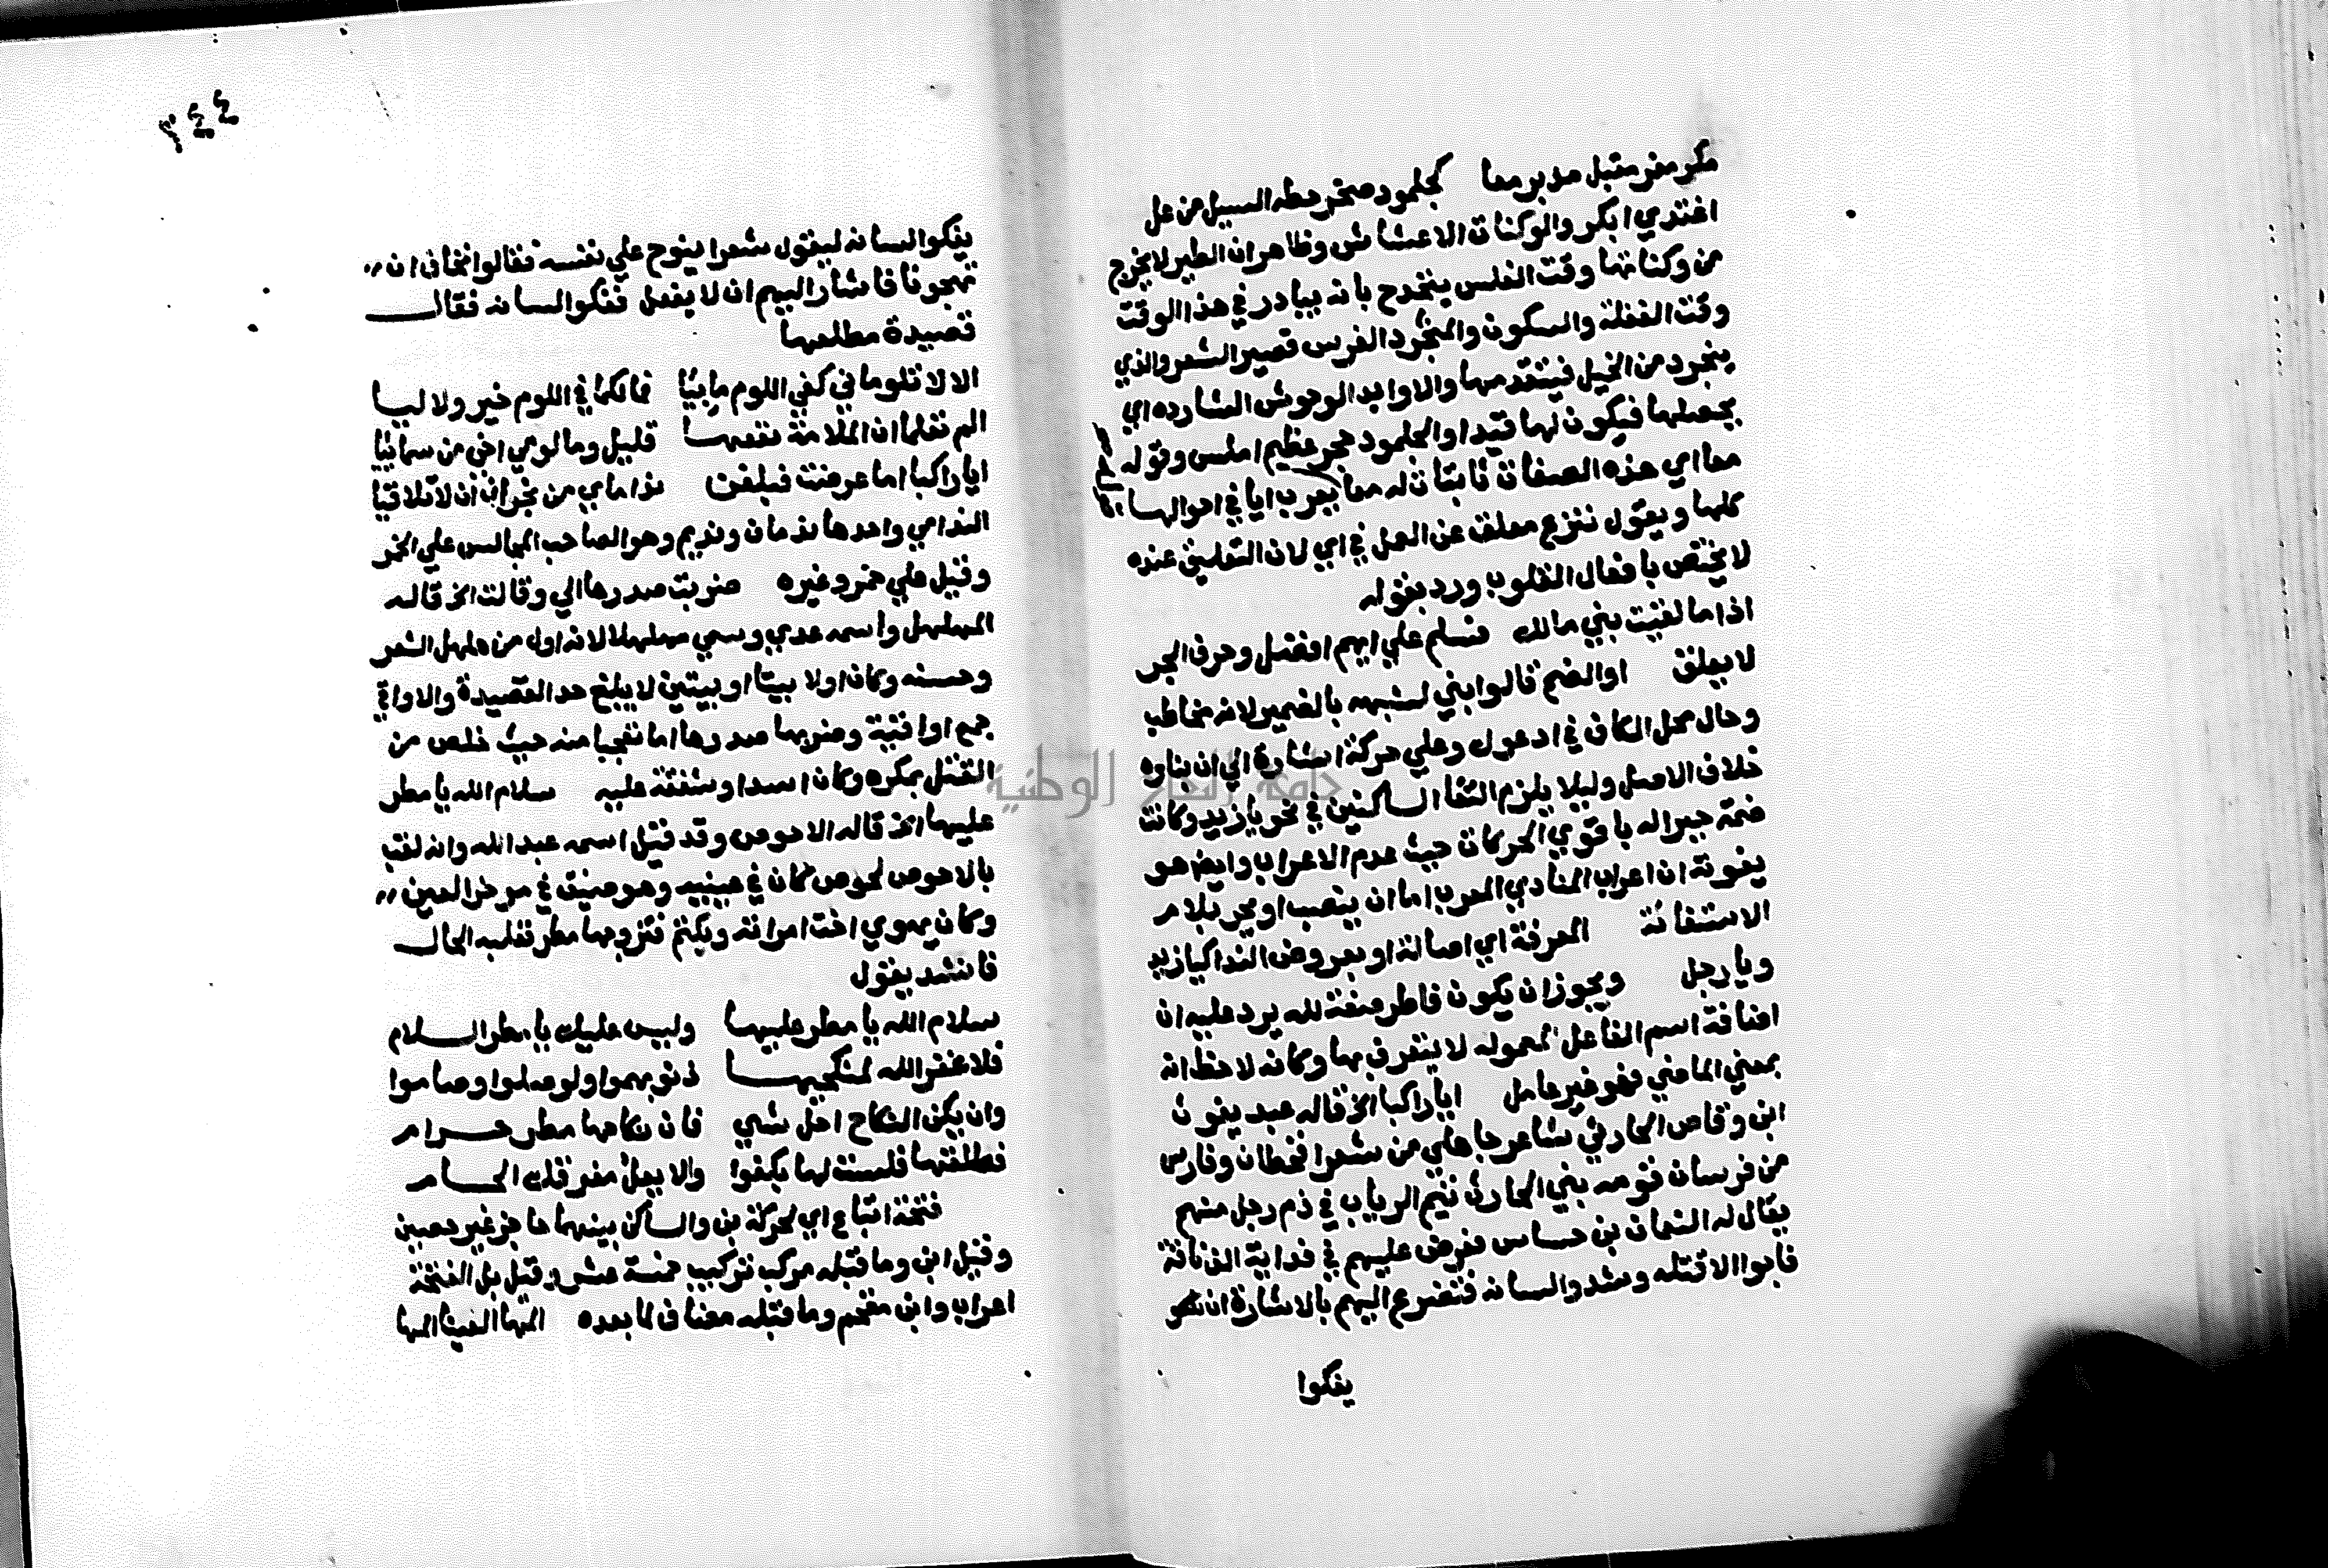 مكر مفر مقبل مدبر معا كجلمود صخر حطه السيل من عل
اغتدي ابكر والوكنات الاعشاش وظاهر ان الطير لا يخرج
من وكناتها وقت الغلس يتمدح بانه يبادر في هذا الوقت
وقت الغفلة والسكون والمنجرد الفرس قصير الشعر والذي
ينجرد من الخيل فيتقدمها والاوابد الوحوش الشارده اي
يجعلها فيكون لها قيدا والجلمود حجر عظيم املس وقوله
معا اي هذه الصفات ثابتات له معا يعرب ايا في احوالها
كلها ويقول ننزع معلق عن العمل في اي لان التعليق عنده
لا يختص بافعال القلوب ورد بقوله
اذا ما لقيت بني مالك فسلم علي ايهم افضل وحرف الجر
لا يعلق او الضم قالوا بني لشبهه بالضمير لانه مخاطب
وحال محل الكاف في ادعوك وعلي حركة اشارة الي ان بناوه
خلاف الاصل وليلا يلزم التقا الساكنين في نحو يا زيد وكانت
ضمة جبرا له باقوي الحركات حيث عدم الاعراب وايض هو
يفوته ان اعراب المنادي المعرب اما ان ينصب او يجر بلام
الاستغاثة المعرفة اي اصالة او بعروض الندا كيا زيد
ويا رجل ويجوز ان يكون فاطر صفة لله يرد عليه ان
اضافة اسم الفاعل لمعموله لا يتعرف بها وكانه لاحظ انه
بمعني الماضي فهو غير عامل ايا راكبا الخ قاله عبد يغوث
ابن وقاص الحارثي شاعر جاهلي من شعرا قحطان وفارس
من فرسان قومه بني الحارث تيم الرباب في ذم رجل منهم
يقال له النعمان بن حساس فعرض عليهم في فدايه الف ناقة
فابوا الا قتله وشدوا لسانه فتضرع اليهم بالاشارة ان
يفكوا
يفكوا لسانه ليقول شعرا ينوح علي نفسه فقالوا نخاف ان
تهجونا فاشار اليهم ان لا يفعل ففكوا لسانه فقال
قصيدة مطلعها
الا لا تلوماني كفي اللوم مابيا فمالكما في اللوم خير ولا ليا
الم تعلما ان الملامة نفعها قليل وما لومي اخي من سماتيا
ايا راكبا اما عرضت فبلغن نداماي من نجران ان لا تلاقيا
الندامي واحدها ندمان ونديم وهو الصاحب المجالس علي الخمر
وقيل علي خمر وغيره ضربت صدرها الي وقالت الخ قاله
المهلهل واسمه عدي وسمي مهلهلا لانه اول من هلهل الشعر
وحسنه وكان اولا بيتا او بيتين لا يبلغ حد القصيدة والاواقي
جمع اواقية وضربها صدرها اما تعجبا منه حيث خلص من
القتل بمكره وكان اسدا وشفقة عليه سلام الله يا مطر
عليها الخ قاله الاحوص وقد قيل اسمه عبد الله وانه لقب
بالاحوص لحوص كان في عينيه وهو ضيق في موخر العين
وكان يهوي اخت امراته ويكتم فتزوجها مطر فغلبه الحال
فانشد يقول
سلام الله يا مطر عليها وليس عليك يا مطر السلام
فلا غفر الله لمنكحيها ذنوبهموا ولو صلوا وصاموا
وان يكن النكاح احل شي فان نكاحها مطر حرام
فطلقها فلست لها بكفوا والا يعل مفرقك الحسام
فتحة اتباع اي لحركة بن والساكن بينهما حاجز غير حصين
وقيل ابن وما قبله مركب تركيب خمسة عشر وقيل بل الفتحة
اعراب وابن مقحم وما قبله مضاف لما بعده